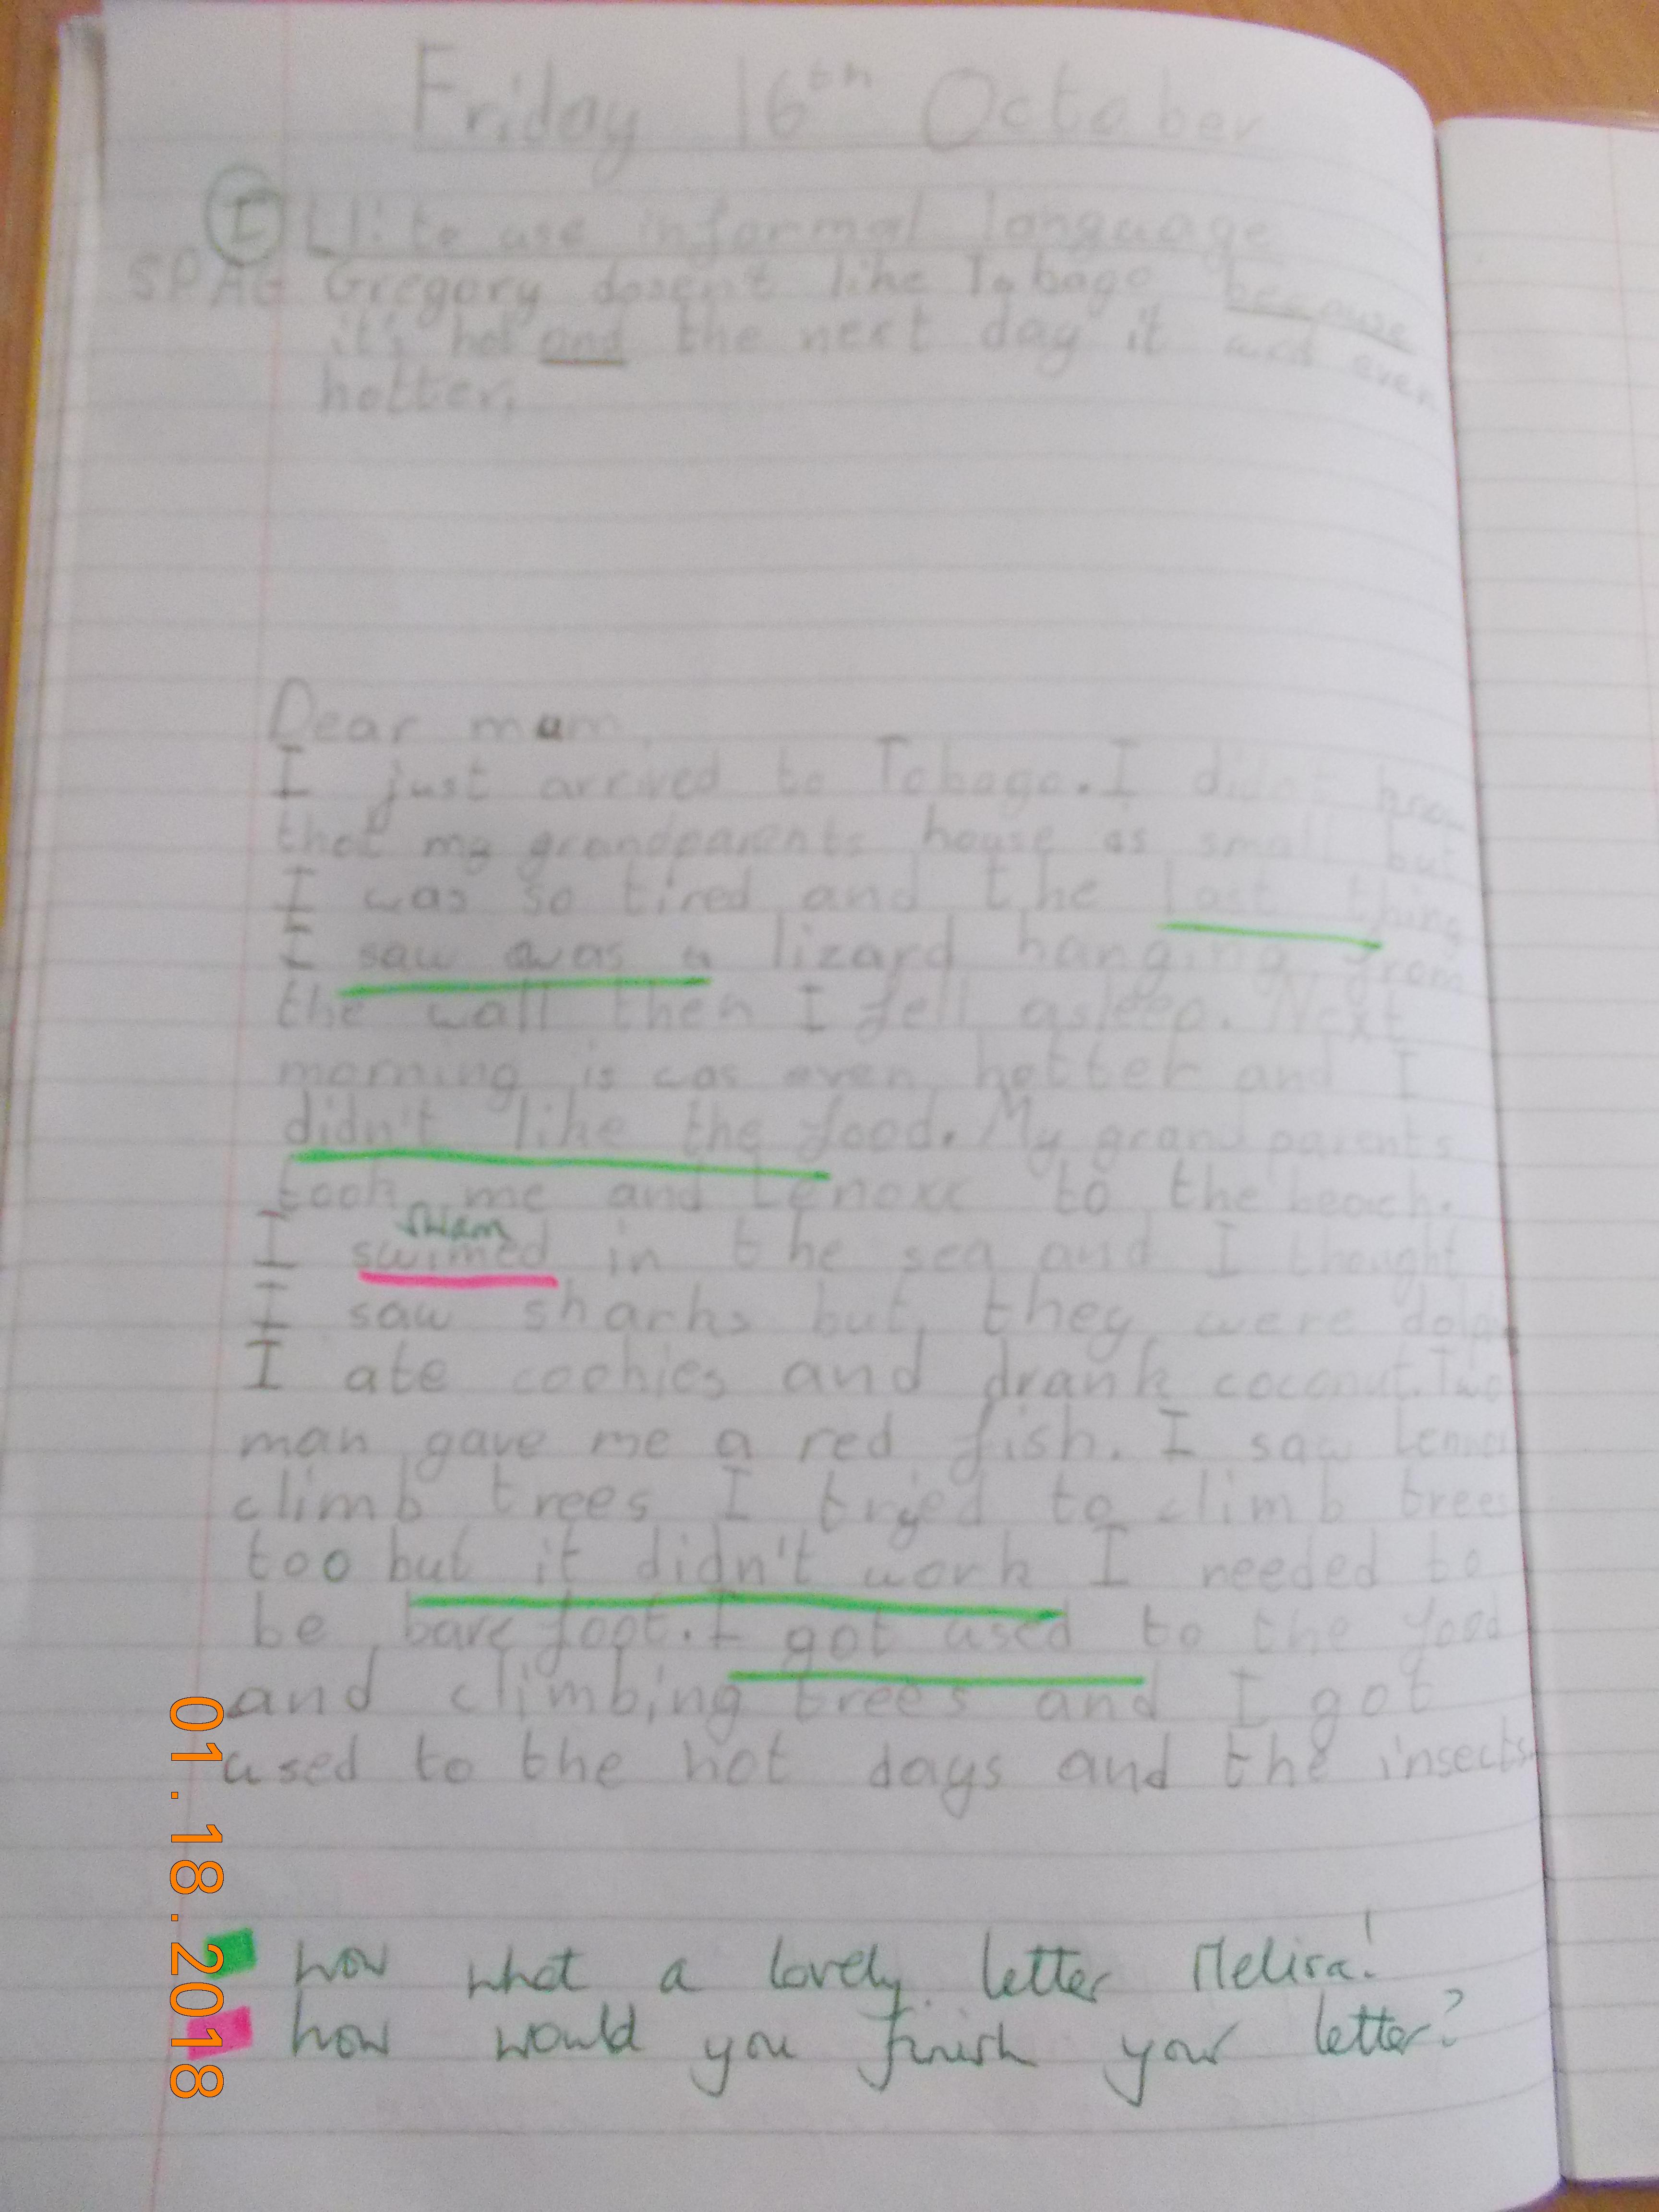 Friday 16th October
I LI: to use informal language
SPAG Gregory dosen't like Tobago because
it's hot and the next day it was even
hotter.
Dear mum
I just arrived to Tobago. I didn't
that my grandparents house as small but
I was so tired and the last thing
I saw was a lizard hanging from
the wall then I fell asleep. Next
morning is was even hotter and I
didn't like the food. My grandparents
took me and Lenoxx to the beach.
swam
I swimed in the sea and I thought
I saw sharks but they were
I ate cookies and drank coconut. Two
man gave me a red fish. I saw
climb trees I tried to climb trees
too but it didn't work I needed to
be barefoot. I got used to the food
and climbing trees and I got
used to the hot days and the insects.
wow what a lovely letter Melisa!
how would you finish your letter?
01.18.2018